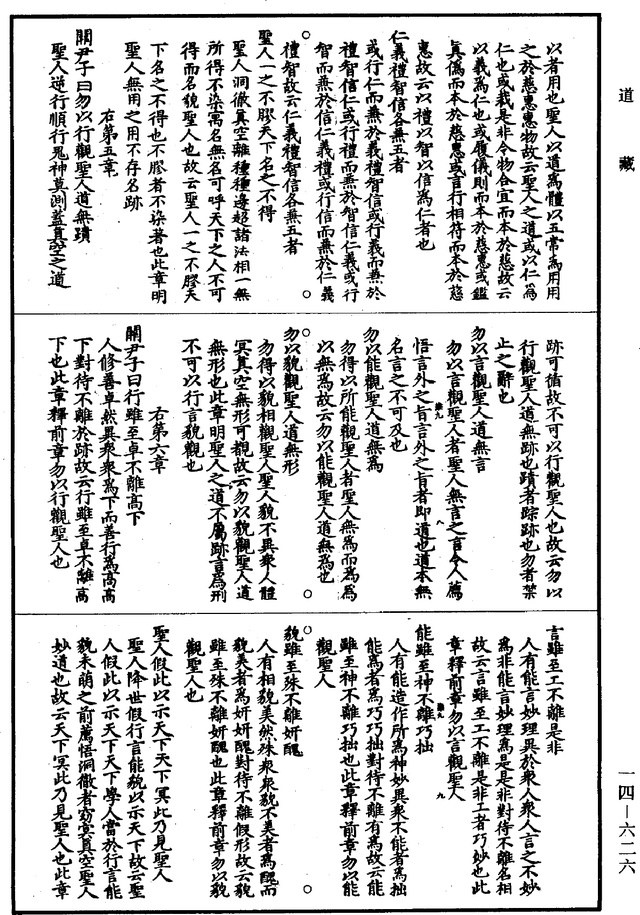 道藏
以者用也聖人以道為體以五常為用用
之於慈惠惠物故云聖人之道或以仁為
仁也或裁是非令物合宜而本於慈故云
以義為仁也或履儀則而本於慈惠或鑑
真偽而本於慈惠或言行相符而本於慈
惠故云以禮以智以信為仁者也
仁義禮智信各兼五者
或行仁而兼於義禮智信或行義而兼於
禮智信仁或行禮而兼於智信仁義或行
智而兼於信仁義禮或行信而兼於仁義
禮智故云仁義禮智信各兼五者
聖人一之不膠天下名之不得
聖人洞徹真空離種種邊超諸法相一無
所得不染寓名無名可呼天下之人不可
得而名貌聖人也故云聖人一之不膠天
下名之不得也不膠者不染著也此章明
聖人無用之用不存名跡
右第五章
關尹子曰勿以行觀聖人道無蹟
聖人逆行順行鬼神莫測蓋真空之道
跡可循故不可以行觀聖人也故云勿以
行觀聖人道無跡也蹟者踪跡也勿者禁
止之辭也
勿以言觀聖人道無言
勿以言觀聖人者聖人無言之言令人薦
悟言外之旨言外之旨者即道也道本無
名言之不可及也
勿以能觀聖人道無為
勿得以所能觀聖人者聖人無為而為為
以無為故云勿以能觀聖人道無為也
勿以貌觀聖人道無形
勿得以貌相觀聖人聖人貌不異衆人體
冥真空無形可觀故云勿以貌觀聖人道
無形也此章明聖人之道不屬跡言為形
不可以行言貌觀也
右第六章
關尹子曰行雖至卓不離高下
人修善卓然異衆衆為下而善行為高高
下對待不離於跡故云行雖至卓不離高
下也此章釋前章勿以行觀聖人也
言雖至工不離是非
人有能言妙理異於衆人衆人言之不妙
為非能言妙理為是是非對待不離名相
故云言雖至工不離是非工者巧妙也此
章釋前章勿以言觀聖人
能雖至神不離巧拙
人有能造作所為神妙異衆不能者為拙
能為者為巧巧拙對待不離有為故云能
雖至神不離巧拙也此章釋前章勿以能
觀聖人
貌雖至殊不離妍醜
人有相貌美然殊衆衆貌不美者為醜而
貌美者為妍妍醜對待不離假形故云貌
雖至殊不離妍醜也此章釋前章勿以貌
觀聖人也
聖人假此以示天下天下冥此乃見聖人
聖人降世假行言能貌以示天下故云聖
人假此以示天下天下學人當於行言能
貌未萌之前薦悟洞徹者窈冥真空聖人
妙道也故云天下冥此乃見聖人也此章
一四—六二六